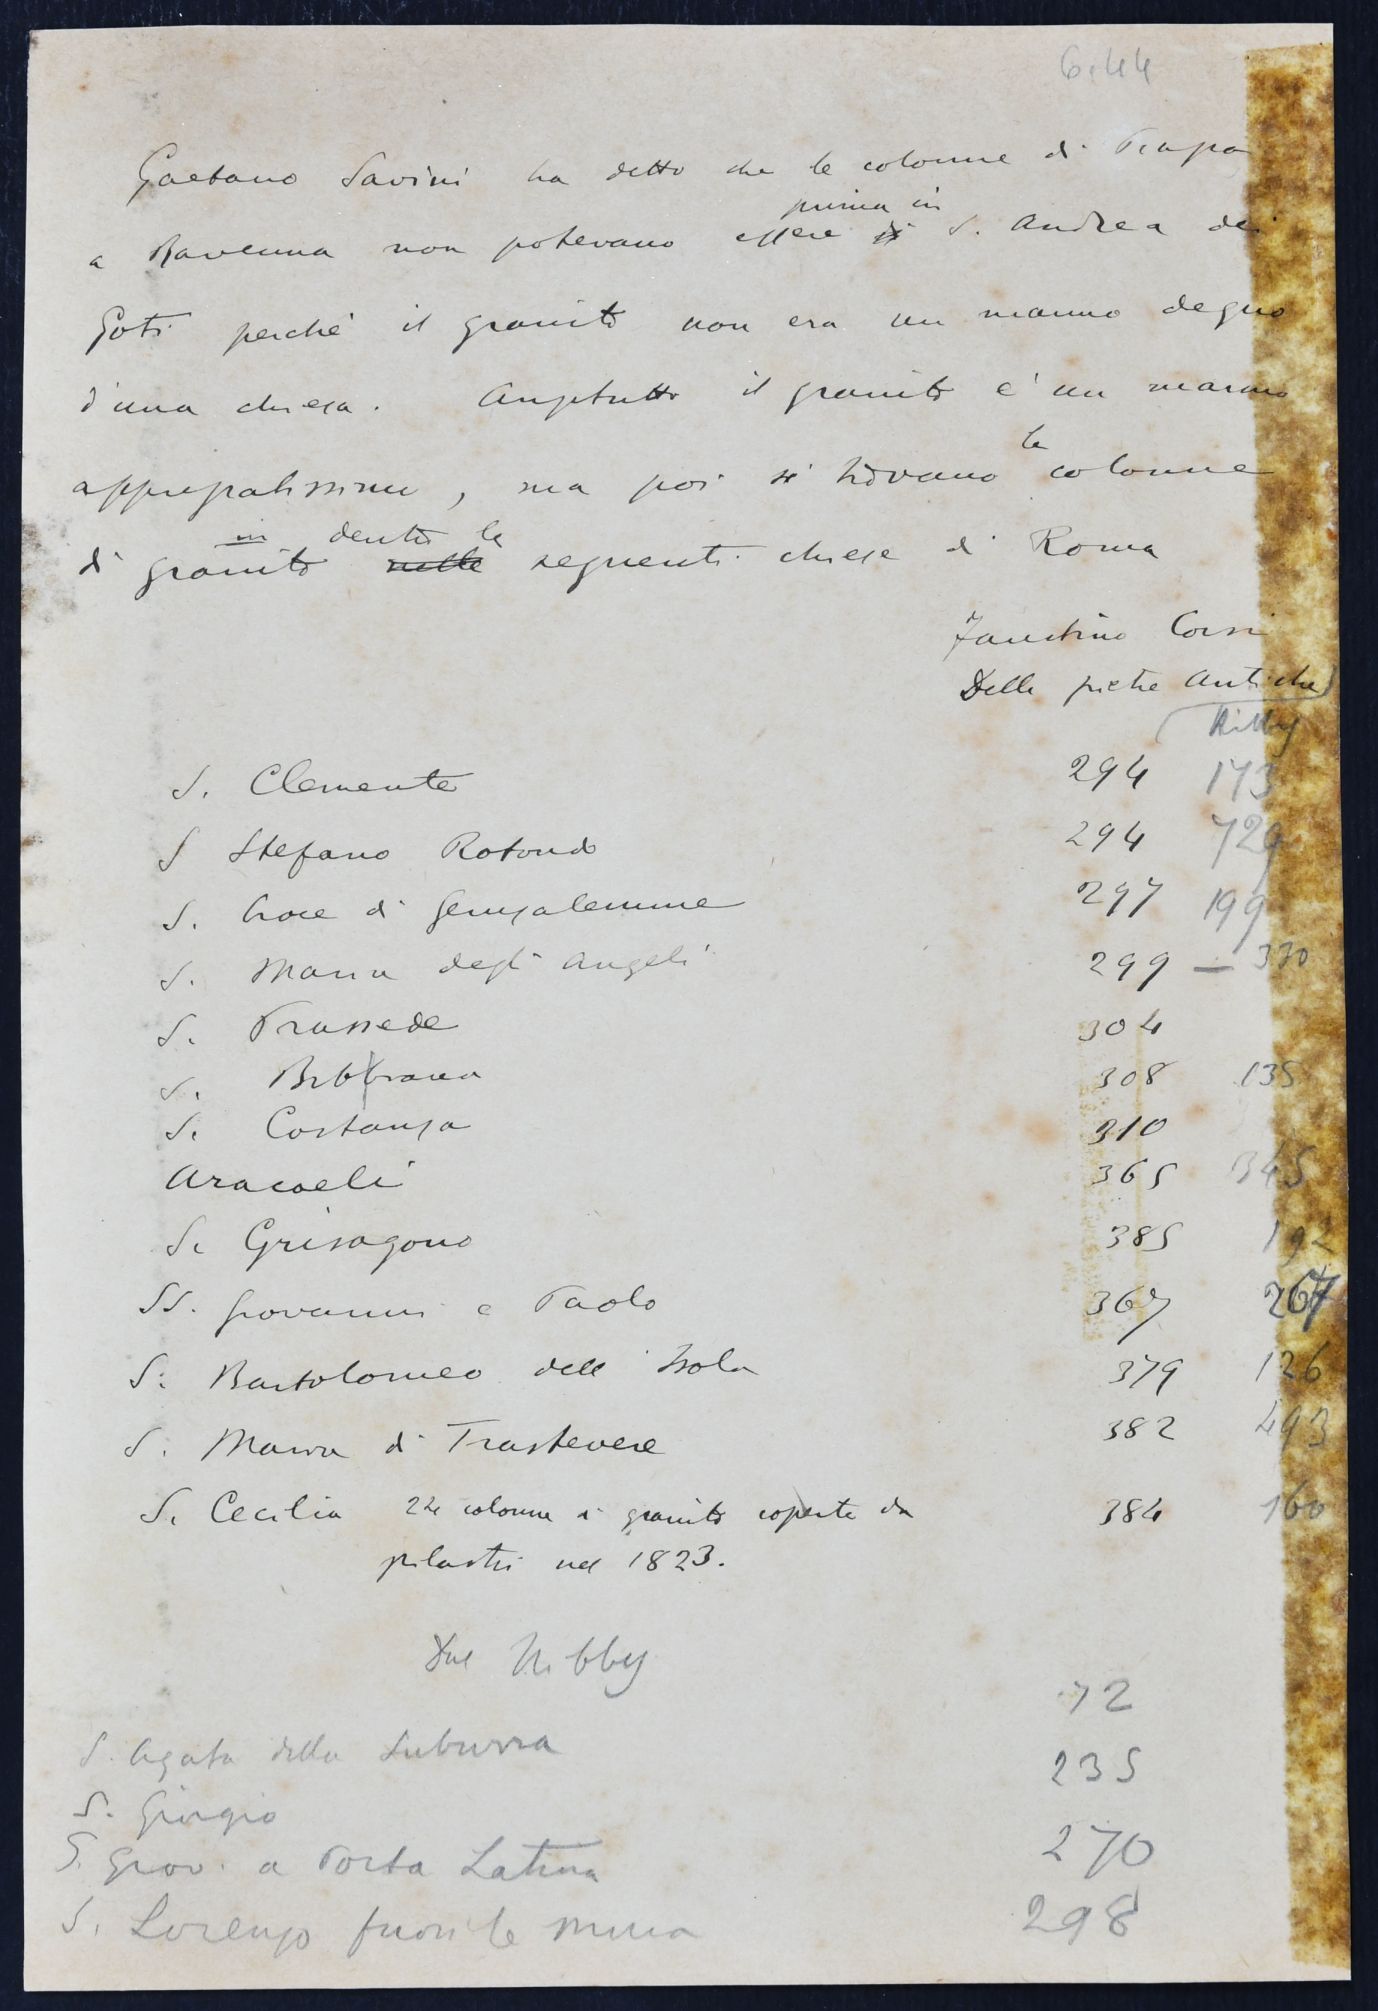 6.44
Gaetano Savini ha detto che le colonne di Piazza
prima in
a Ravenna non potevano essere di S. Andrea dei
Goti perchè il granito non era un marmo degno
d'una chiesa. Anzitutto il granito è un marmo
le
apprezzatissimo, ma poi si trovano colonne
in dentro le
di granito nelle seguenti chiese di Roma
Faustino Corsi
Delle pietre antiche
Nibby
S. Clemente 294 173
S Stefano Rotondo 294 729
S. Croce di Gerusalemme 297 199
S. Maria degli Angeli 299 — 330
S. Prassede 304
S. Bibbiana 308 135
S. Costanza 310
Aracoeli 365 345
S. Grisogono 385 192
SS. Giovanni e Paolo 367 267
S. Bartolomeo dell Isola 379 126
S. Maria di Trastevere 382 493
S. Cecilia 24 colonne di granito coperte da 384 160
pilastri nel 1823.
Dal Nibby
S. Agata della Suburra 72
S. Giorgio 235
S. Giov. a Porta Latina 270
S. Lorenzo fuori le mura 298